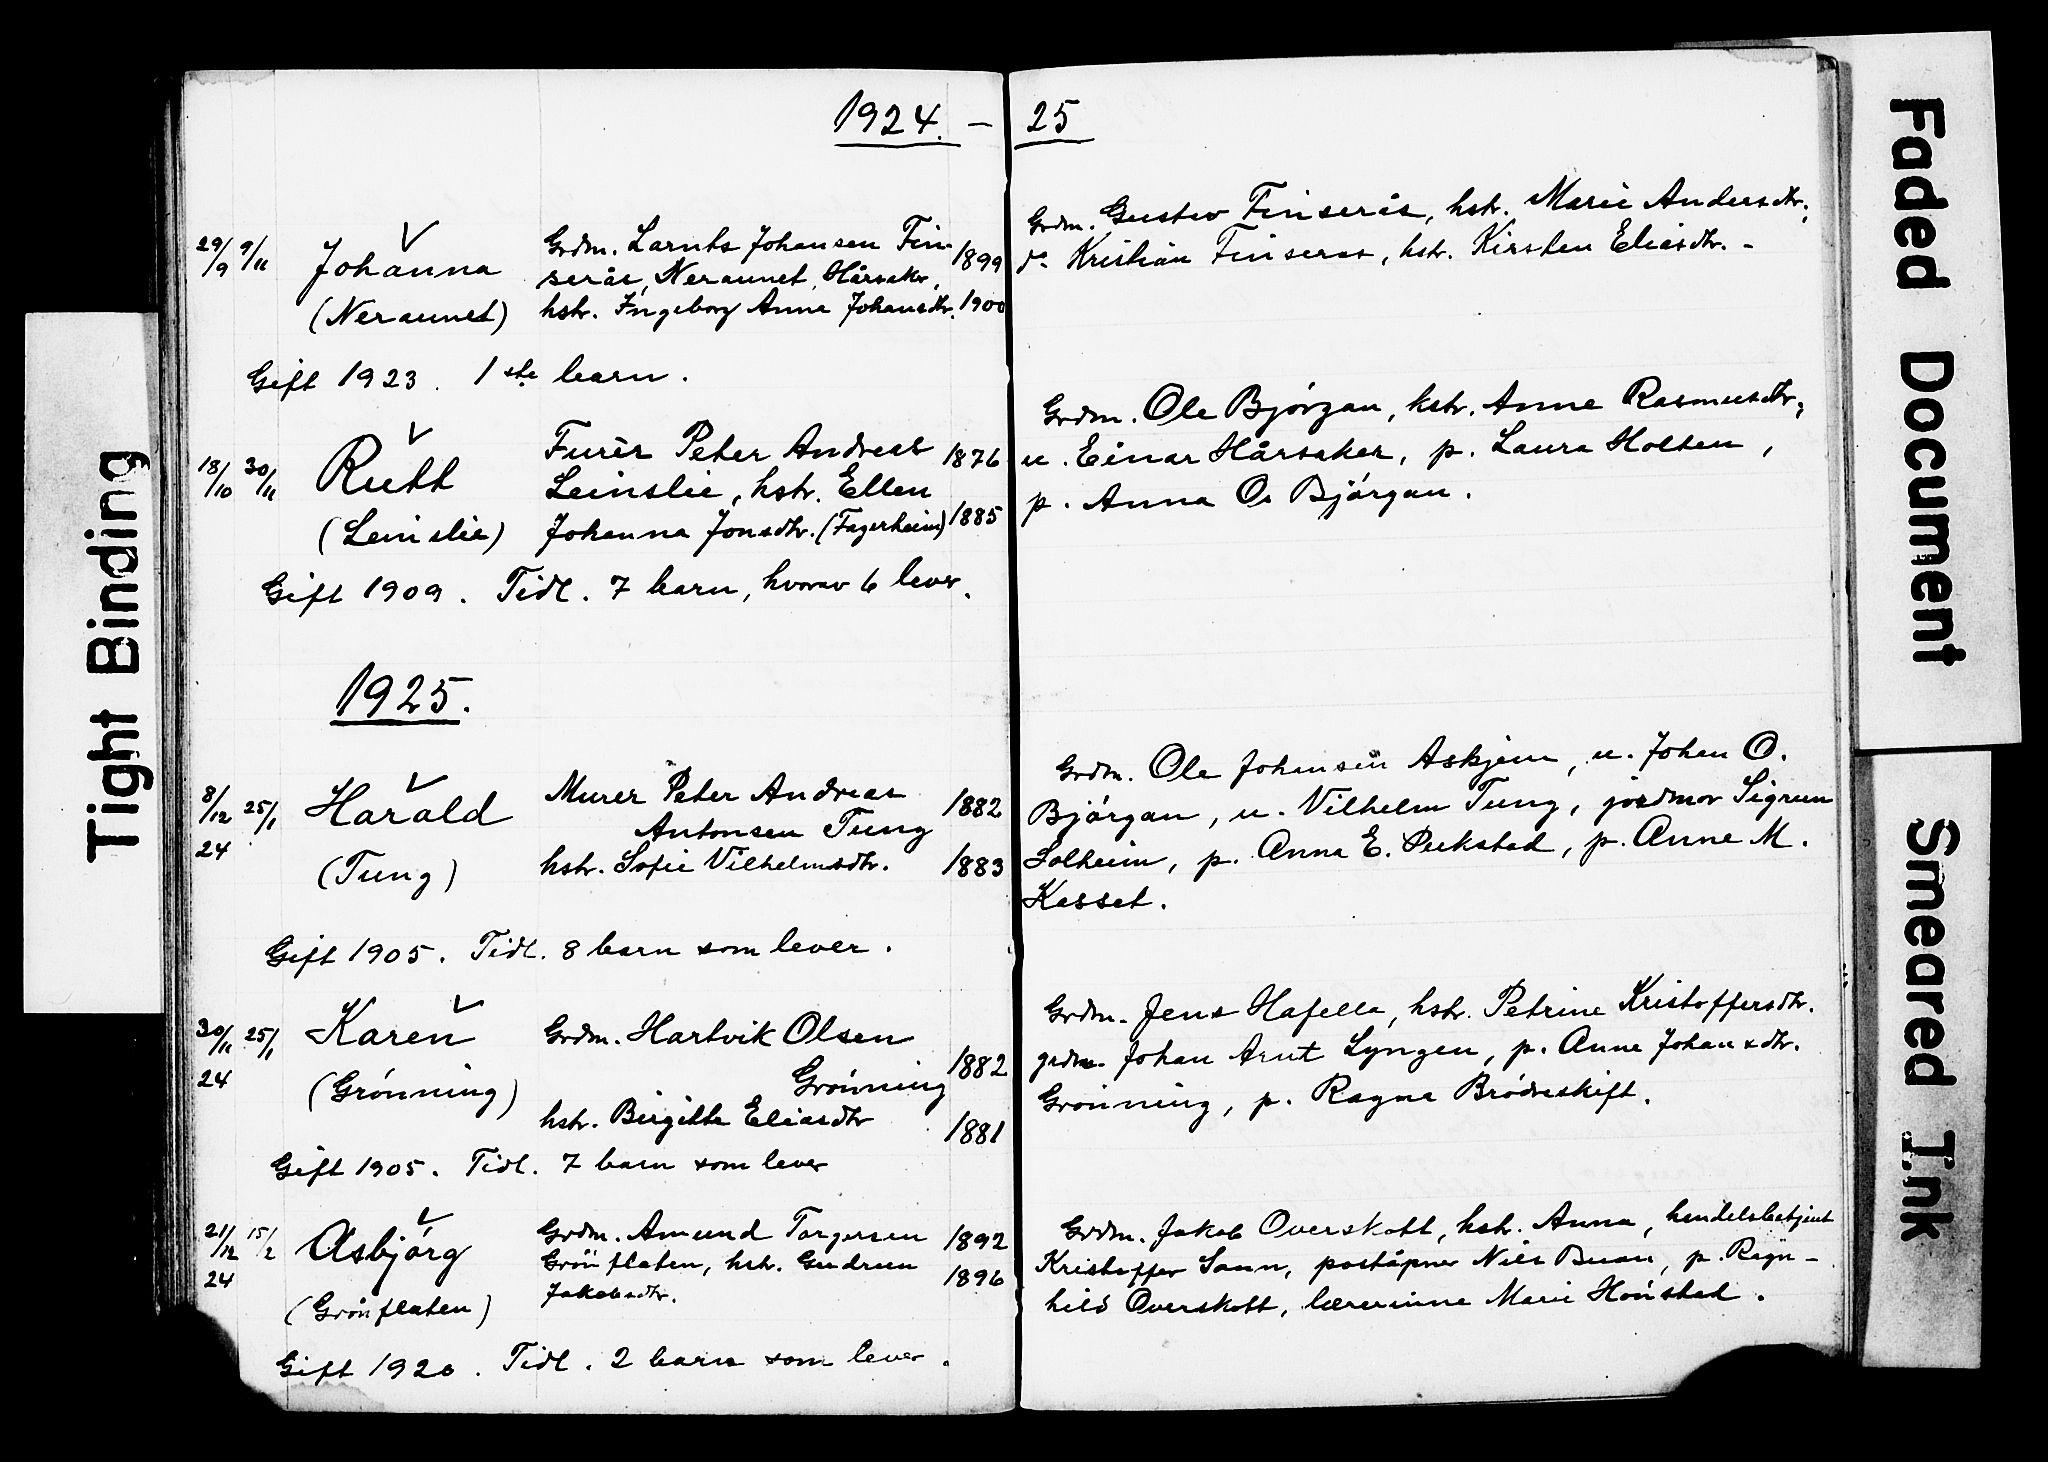 1924. — 25
29/9 9/11 Johanna Grdm. Larnts Johansen Fin- 1899
serås, Neraunet, Hårsaker,
(Neraunet) hstr. Ingeborg Anna Johansdtr. 1900
Gift 1923. 1ste barn.
18/10 30/11 Rutt Furér Peter Andreas 1876
Leinslie, hstr. Ellen
(Leinslie) Johanna Jonsdtr. (Fagerheim) 1885
Gift 1909. Tidl. 7 barn, hvorav 6 lever.
1925.
8/12 25/1 Harald Murer Peter Andreas 1882
24 Antonsen Tung
(Tung) hstr. Sofie Vilhelmsdtr. 1883
Gift 1905. Tidl. 8 barn som lever.
30/11 25/1 Karen Grdm. Hartvik Olsen
24 (Grönning) Grönning 1882
hstr. Birgitte Eliasdtr 1881
Gift 1905. Tidl. 7 barn som lever
21/12 15/2 Asbjörg Grdm. Amund Torgersen 1892
24 Grönflaten, hstr. Gudrun 1896
(Grönflaten) Jakobsdtr.
Gift 1920. Tidl. 2 barn som lever.
Grdm. Gustav Finserås, hstr. Marie Andersdtr.,
do Kristian Finserås, hstr. Kirsten Eliasdtr. -
Grdm. Ole Bjórgan, hstr. Anne Rasmusdtr,
u. Einar Hårsaker, p. Laura Holten,
p. Anna O. Bjórgan.
Grdm. Ole Johansen Askjem, u. Johan O.
Bjórgan, u. Vilhelm Tung, jordmor Sigrun
Solheim, p. Anna E. Pukstad, p. Anne M.
Kasset.
Grdm. Jens Hafella, hstr. Petrine Kristoffersdtr.
grdm. Johan Arnt Lyngen, p. Anne Johansdtr.
Grönning, p. Ragna Brödreskift.
Grdm. Jakob Overskott, hstr. Anna, handelsbetjent
Kristoffer Saun, poståpner Nils Buan, p. Ragn-
hild Overskott, lærerinne Marie Hönstad.
Tight Binding
Faded Document
Smeared Ink